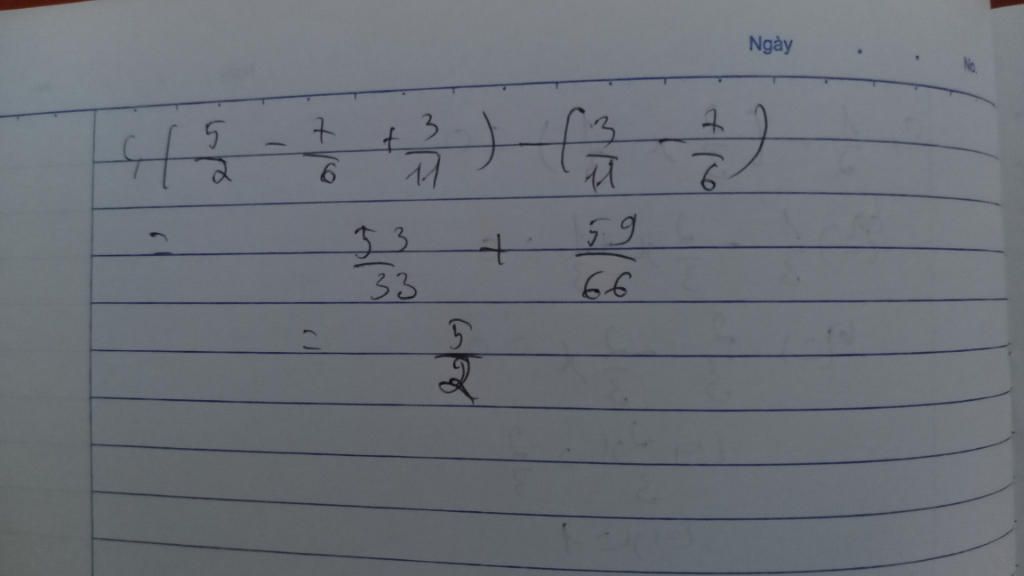 Ngày . .
No.
c, ( 5/2 - 7/6 + 3/11 ) - ( 3/11 - 7/6 )
= 53/33 + 59/66
= 5/2